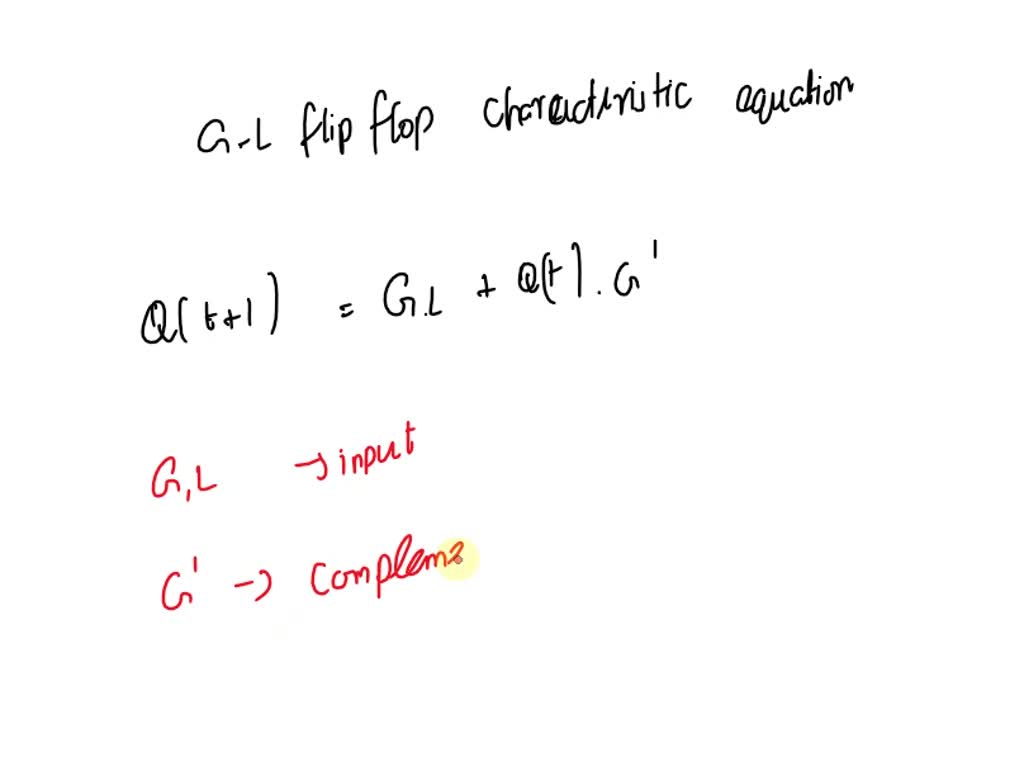 G-L flip flop characteristic equation
Q(t+1) = G.L + Q(t).G'
G,L → input
G' → Complem